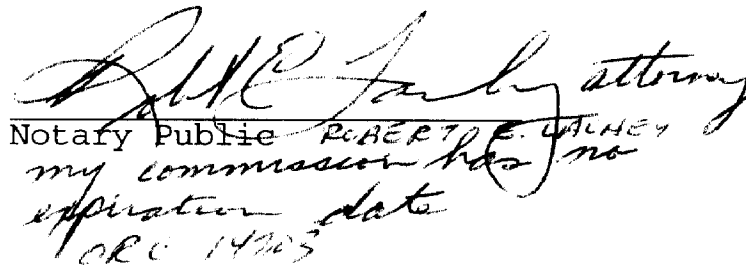 Robert E. attorney
Notary Public ROBERT E.
my commission has no
expiration date
ORC 147.03